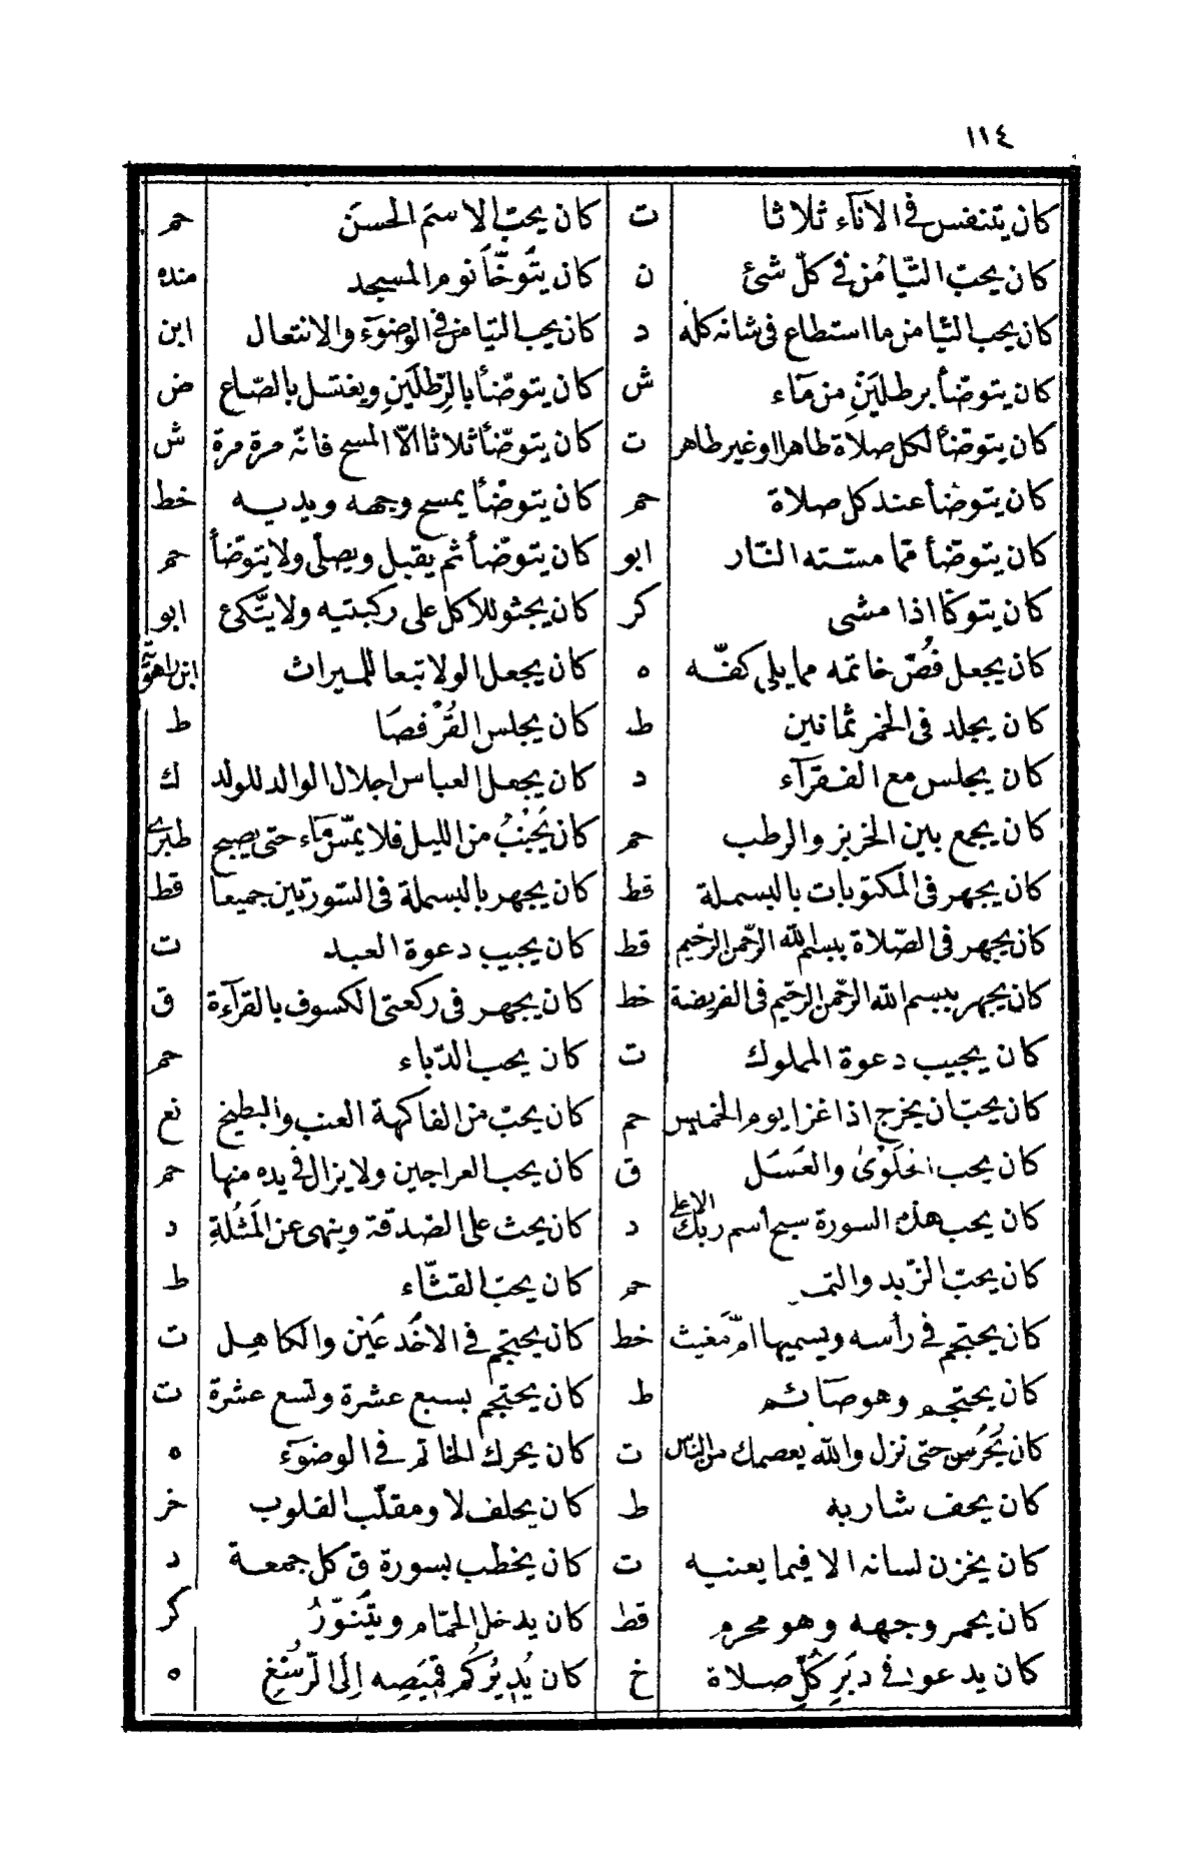 ١١٤
كان يتنفس في الاناء ثلاثا ت كان يحب الاسم الحسن حم
كان يحب التيامن في كل شئ ن كان يتوخا نوم المسجد منده
كان يحب التيامن ما استطاع في شانه كله د كان يحب التيامن في الوضوء والانتعال ابن
كان يتوضأ برطلين من ماء ش كان يتوضأ بالرطلين ويغتسل بالصاع ض
كان يتوضأ لكل صلاة طاهرا او غير طاهر ت كان يتوضأ ثلاثا الا المسح فانه مرة مرة ش
كان يتوضأ عند كل صلاة حم كان يتوضأ يمسح وجهه ويديه خط
كان يتوضأ مما مسته النار ابو كان يتوضأ ثم يقبل ويصلى ولا يتوضأ حم
كان يتوكأ اذا مشى كر كان يجثو للاكل على ركبتيه ولا يتكئ ابو
كان يجعل فص خاتمه مما يلى كفه ه كان يجعل الولا تبعا للميراث
كان يجلد فى الخمر ثمانين ط كان يجلس القرفصا ط
كان يجلس مع الفقرآء د كان يجعل العباس اجلال الوالد للولد ك
كان يجمع بين الخربز والرطب حم كان يجنب من الليل فلا يمس ماء حتى يصبح طبرى
كان يجهر فى المكتوبات بالبسملة قط كان يجهر بالبسملة فى السورتين جميعا قط
كان يجهر فى الصلاة ببسم الله الرحمن الرحيم قط كان يجيب دعوة العبد ت
كان يجهر ببسم الله الرحمن الرحيم فى الفريضة خط كان يجهر فى ركعتى الكسوف بالقرآءة ق
كان يجيب دعوة المملوك ت كان يحب الدباء حم
كان يحب ان يخرج اذا غزا يوم الخميس حم كان يحب من الفاكهة العنب والبطيخ نع
كان يحب الحلوى والعسل ق كان يحب العراجين ولا يزال في يده منها حم
كان يحب هذه السورة سبح اسم ربك الاعلى د كان يحث على الصدقة وينهى عن المثلة د
كان يحب الزبد والتمر حم كان يحب القثاء ط
كان يحتجم في رأسه ويسميها ام مغيث خط كان يحتجم في الاخدعين والكاهل ت
كان يحتجم وهو صائم ط كان يحتجم بسبع عشرة وتسع عشرة ت
كان يحرس حتى نزل والله يعصمك من الناس ت كان يحرك الخاتم في الوضوء ه
كان يحف شاربه ط كان يحلف لا ومقلب القلوب خر
كان يخزن لسانه الا فيما يعنيه ت كان يخطب بسورة ق كل جمعة د
كان يخمر وجهه وهو محرم قط كان يدخل الحمام ويتنور كر
كان يدعو فى دبر كل صلاة خ كان يدير كم قميصه الى الرسغ ه